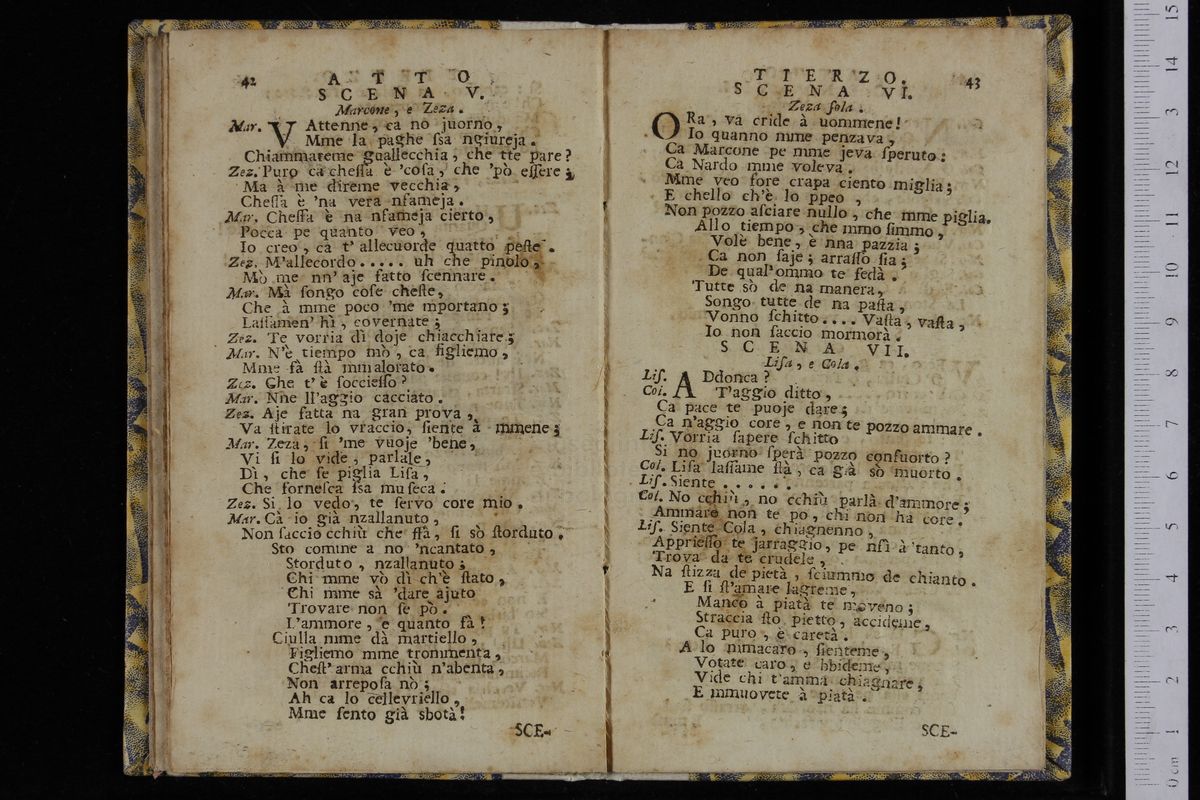 42 ATTO
SCENA V.
Marcone, e Zeza.
Mar. VAttenne, ca no juorno,
Mme la paghe ſsa ngiureja.
Chiammareme guallecchia, che tte pare?
Zez. Puro ca cheſſa è 'coſa, che 'pò eſſere;
Ma à me direme vecchia,
Cheſſa è 'na vera nfameja.
Mar. Cheſſa è na nfameja cierto,
Pocca pe quanto veo,
Io creo, ca t' allecuorde quatto peſte.
Zez. M'allecordo..... uh che pinolo,
Mò me nn' aje fatto ſcennare.
Mar. Mà ſongo coſe cheſte,
Che à mme poco 'me mportano;
Laſſamen' hì, covernate;
Zez. Te vorria dì doje chiacchiare;
Mar. N'è tiempo mò, ca figliemo,
Mme fà ſtà mmalorato.
Zez. Che t'è ſoccieſſo?
Mar. Nne ll'aggio cacciato.
Zez. Aje fatta na gran prova,
Va ſtirate lo vraccio, ſiente à mmene;
Mar. Zeza, ſi 'me vuoje 'bene,
Vi ſi lo vide, parlale,
Dì, che ſe piglia Liſa,
Che forneſca ſsa muſeca.
Zez. Si lo vedo, te ſervo core mio.
Mar. Cà io già nzallanuto,
Non ſaccio cchiù che ffà, ſi sò ſtorduto.
Sto comme a no 'ncantato,
Storduto, nzallanuto;
Chi mme vò dì ch'è ſtato,
Chi mme sà 'dare ajuto
Trovare non ſe pò.
L'ammore, e quanto fà!
Ciulla mme dà martiello,
Figliemo mme trommenta,
Cheſt' arma cchiù n'abenta,
Non arrepoſa nò;
Ah ca lo cellevriello,
Mme ſento già sbotà!
SCE-
TIERZO. 43
SCENA VI.
Zeza ſola.
ORa, va cride à uommene!
Io quanno mme penzava,
Ca Marcone pe mme jeva ſperuto:
Ca Nardo mme voleva.
Mme veo fore crapa ciento miglia;
E chello ch'è lo ppeo,
Non pozzo aſciare nullo, che mme piglia.
Allo tiempo, che mmo ſimmo,
Volè bene, è nna pazzia;
Ca non ſaje; arraſſo ſia;
De qual'ommo te fedà.
Tutte sò de na manera,
Songo tutte de na paſta,
Vonno ſchitto.... Vaſta, vaſta,
Io non ſaccio mormorà.
SCENA VII.
Liſa, e Cola.
Liſ. ADdonca?
Col. T'aggio ditto,
Ca pace te puoje dare;
Ca n'aggio core, e non te pozzo ammare.
Liſ. Vorria ſapere ſchitto
Si no juorno ſperà pozzo confuorto?
Col. Liſa laſſame ſtà, ca già sò muorto.
Liſ. Siente......
Col. No cchiù, no cchiù parlà d'ammore;
Ammare non te po, chi non ha core.
Liſ. Siente Cola, chiagnenno,
Apprieſſo te jarraggio, pe nſì à 'tanto,
Trova da te crudele,
Na ſtizza de pietà, ſciummo de chianto.
E ſi ſt'amare lagreme,
Manco à piatà te moveno;
Straccia ſto pietto, accideme,
Ca puro, è caretà.
A lo nimacaro, ſienteme,
Votate caro, e bbideme,
Vide chi t'amma chiagnare,
E mmuovete à piatà.
SCE-